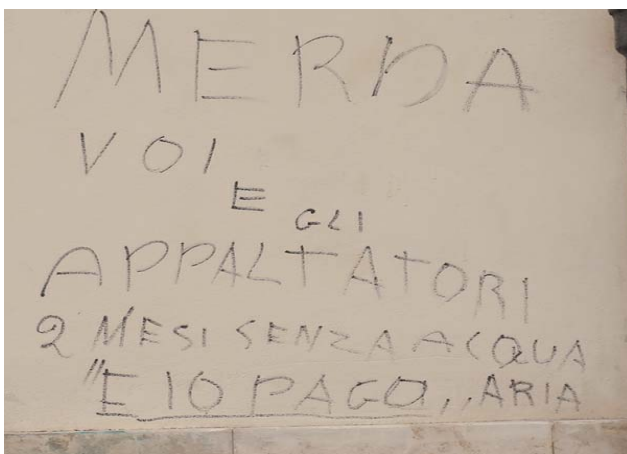 MERDA
VOI
E GLI
APPALTATORI
2 MESI SENZA ACQUA
"E IO PAGO,, ARIA